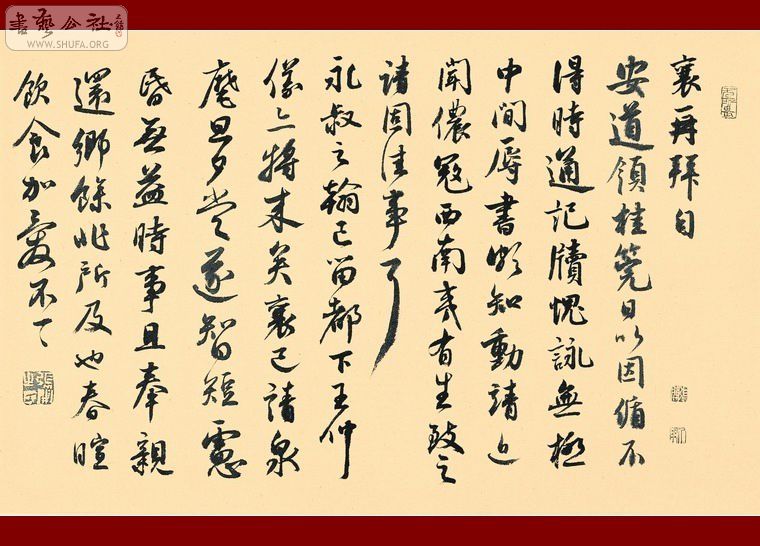 襄再拜自
安道領桂筦日以因循不
得時通記牘愧詠無極
中間辱書頗知動靖近
聞儂寇西南夷有生致之
請固佳事耳
永叔之翰已留都下王仲
儀亦將來矣襄已請泉
麾旦夕當遂智短慮
昏無益時事且奉親
還鄉餘非所及也春暄
飲食加愛不一一
書藝公社
WWW.SHUFA.ORG